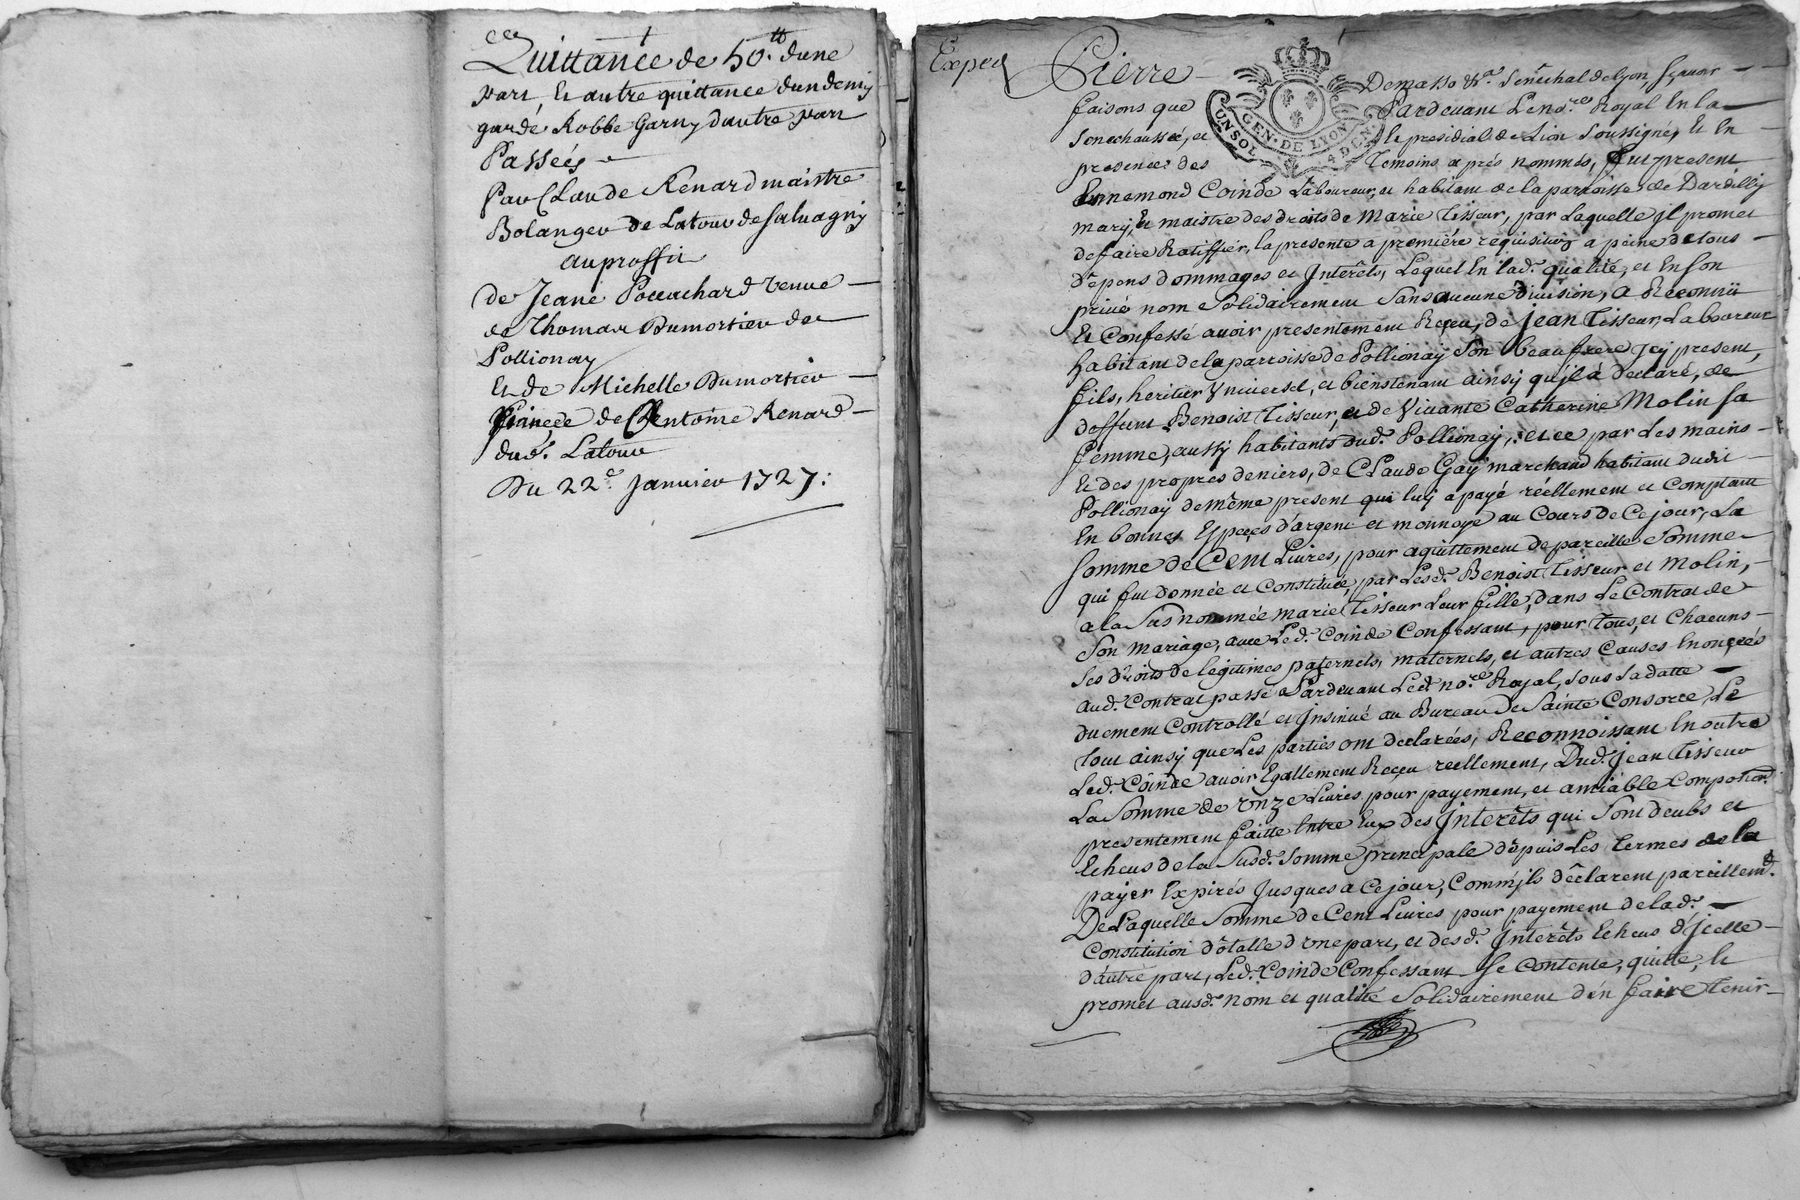 Quittance de 50.tt dune
part, Et autre quittance dun demy
garde Robbe Garny dautre part
Passées
Par Claude Renard maistre
Bolanger de Latour de Salvagny
au proffit
de Jeane Pocachard veuve
de Thomas Dumortier de
Pollionay
Et de Michelle Dumortier
fiancée de Anntoine Renard
dud. Latour
Du 22e. Janvier 1727:
Exped
Pierre Demasso &a. Senechal de lyon, sçavoir
faisons que Pardevant Le no.re Royal En la
Senechaussée, et le presidial de Lion Soussigné, Et En
presence des Temoins après nommés, fut present
Ennemond Coinde Laboureur, et habitant de la parroisse de Dardilly
mary, Et maistre des droits de Marie Tisseur, par Laquelle jl promet
de faire Ratiffier, la presente a premiére requisition a peine de tous
Dépens dommages et Interêts, Lequel En lad. qualité, et En son
privé nom Solidairement Sans aucune division, a Reconnü
Et Confessé avoir presentement Reçeu, de Jean Tisseur, Laboureur
habitant de la parroisse de Pollionaÿ Son beaufrere Jcy present,
fils, heritier Vniversel, et bienstenant ainsy quil à declaré, de
deffunt Benoist Tisseur, et de Vivante Catherine Molin Sa
femme, aussy habitants dud. Pollionaÿ, et ce par Les mains
Et des propres deniers, de Claude Gay marchand habitant dudit
Pollionay de même present qui luy a payé réellement et Comptant
En bonnes Espeçes d'argent et monnoye au Cours de Ce jour, La
Somme de Cent Livres, pour aquittement de pareille Somme
qui fut donnée et Constituée, par Lesd. Benoist Tisseur et Molin,
a la Sus nommée marie Tisseur Leur fille, dans Le Contrat de
Son mariage, avec Led. Coinde Confessant, pour Tous, et Chacuns
Ses droits de legitimes paternels, maternels, et autres Causes Enonçées
aud. Contrat passé Pardevant Led. no.re Royal, sous Sa datte
duement Controllé et Insinué au Bureau de Sainte Consorce, Le
tout ainsy que Les parties ont declarées, Reconnoissant En outre
Led. Coinde avoir Egallement Reçeu reellement, Dud. Jean Tisseur
La Somme de Onze Livres pour payement, et amiable Compotion
presentement faitte Entre Eux des Interêts qui Sont deubs et
Echeus de la Susd. Somme principale dèpuis Les termes de la
payer Expirés Jusques a Ce jour, Comm'jls dèclarent pareillemt.
De Laquelle Somme de Cent Livres pour payement de lad.
Constitution dotalle d'vne part, et desd. Interêts Echeus d'jcelle
d'autre part, Led. Coinde Confessant Se Contente, quitte, Et
promet ausd. nom et qualité Solidairement d'en faire tenir
GEN. DE LYON